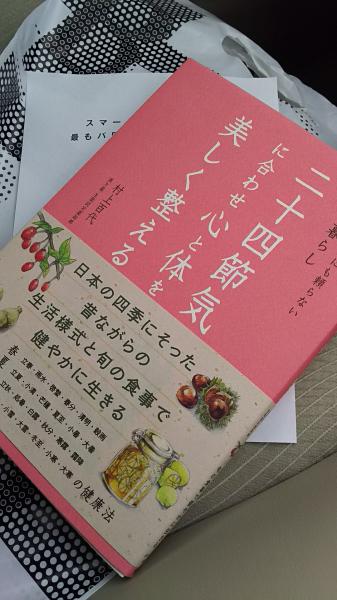 にも頼らない
暮らし
二十四節気
に合わせ心と体を
美しく整える
村上百代
日本の四季にそった
昔ながらの
生活様式と旬の食事で
健やかに生きる
春 立春・雨水・啓蟄・春分・清明・穀雨
夏 立夏・小満・芒種・夏至・小暑・大暑
立秋・処暑・白露・秋分・寒露・霜降
・小雪・大雪・冬至・小寒・大寒
の健康法
スマー
最もパワ